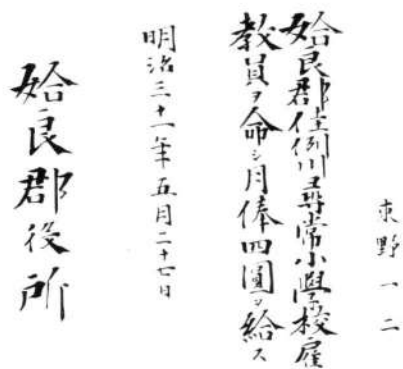 野一二
姶良郡佳例川尋常小學校雇
教員ヲ命シ月俸四圓ヲ給ス
明治三十一年五月二十七日
姶良郡役所